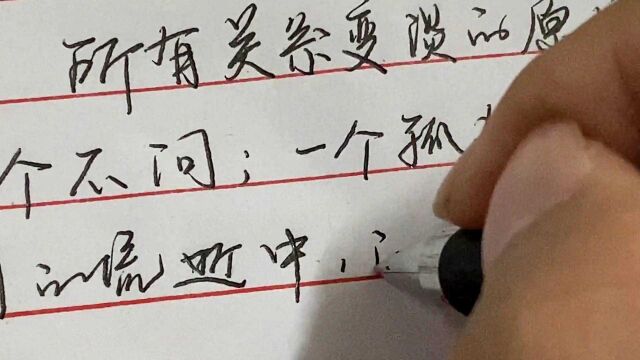 所有关系变淡的原
个不问；一个孤
的流逝中，